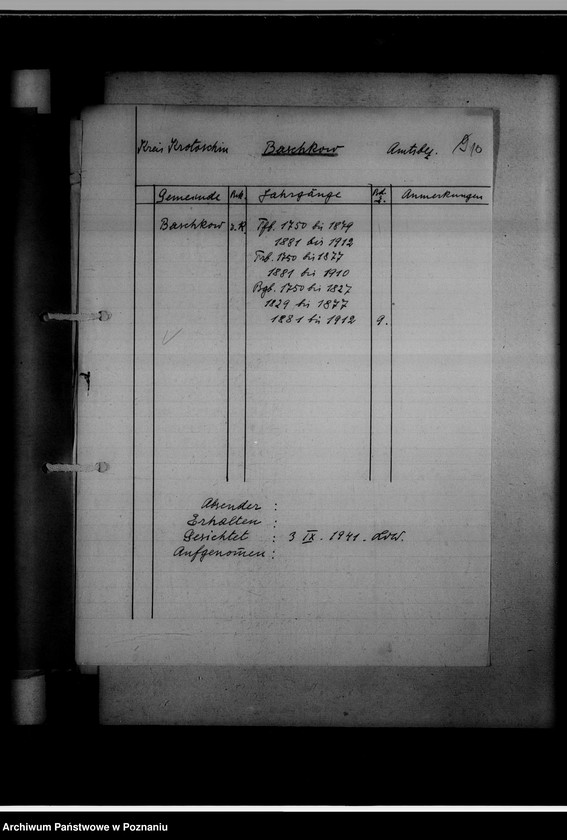 Kreis Krotoschin Baschkow Amtsbez. D 10
Gemeinde Bek. Jahrgänge Bd. Z. Anmerkungen
Baschkow r.K. Tfb. 1750 bis 1879
1881 bis 1912
Trb. 1750 bis 1877
1881 bis 1910
Bgb. 1750 bis 1827
1829 bis 1877
1881 bis 1912 9.
Absender :
Erhalten :
Gesichtet : 3 IX. 1941.
Aufgenom̄en :
Archiwum Państwowe w Poznaniu